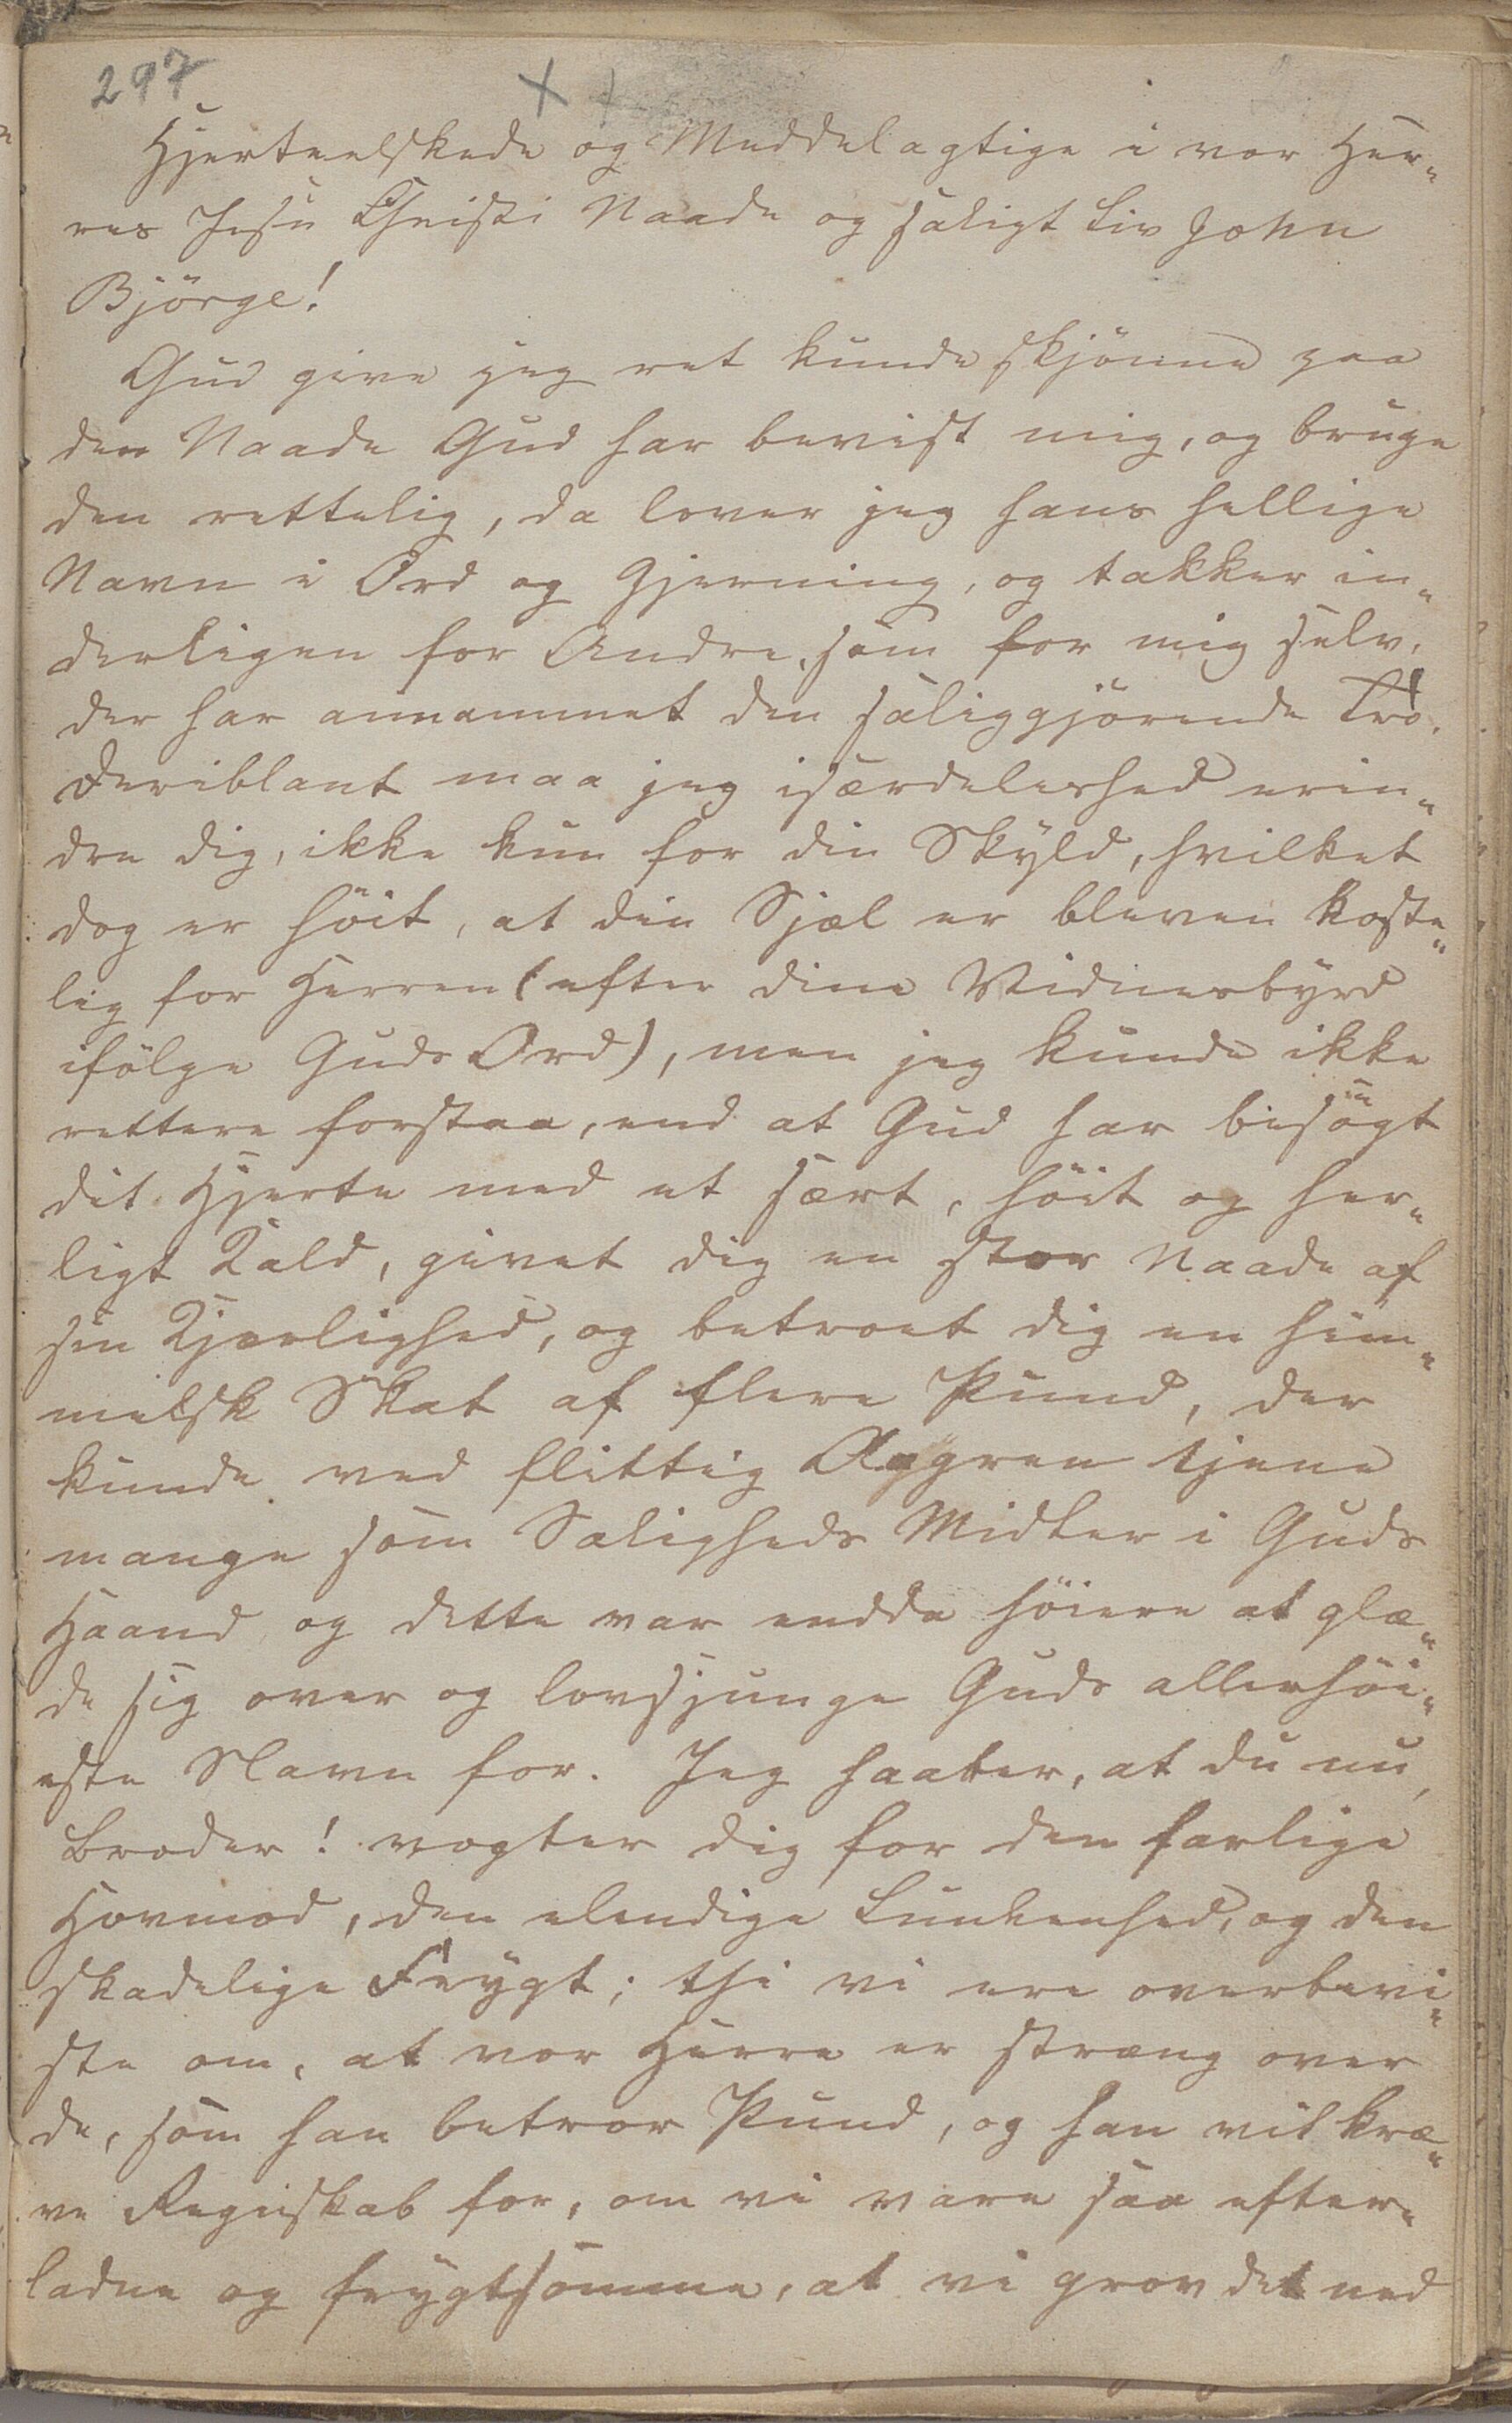 297
Hjerteelskede og Meddelagtige i vor Her„
res Jesu Christi Naade og saligt Liv John
Björge!
Gud give jeg ret kunde skjönne paa
den Naade Gud har bevist mig, og bruge
den rettelig, da lover jeg hans hellige
Navn i Ord og Gjerning, og takker in„
derligen for Andre, som for mig selv,
der har annammet den saliggjörende Tro.
Deriblant maa jeg isærdeleshed erin„
dre dig, ikke kun for din Skyld, hvilket
dog er höit, at din Sjæl er bleven koste„
lig for Herren (efter dine Vidnesbyrd
ifölge Guds Ord), men jeg kunde ikke
rettere forstaa, end at Gud har besögt
dit Hjerte med et sært, höit og her„
ligt Kald, givet dig en stor Naade af
sin Kjærlighed, og betroet dig en him„
melsk Skat af flere Pund, der
kunde ved flittig Aagren tjene
mange som Saligheds Midler i Guds
Haand og dette var endda höiere at glæ„
de sig over og lovsjunge Guds allerhöi„
este Navn for. Jeg haaber, at du nu,
Broder! vogter dig for den farlige
Hovmod, den elendige Lunkenhed, og den
skadelige Frygt; thi vi ere overbevi„
ste om, at vor Herre er stræng over
de, som han betror Pund, og han vil kræ„
ve Regnskab for, om vi vare saa efter„
ladne og frygtsomme, at vi grov det ned